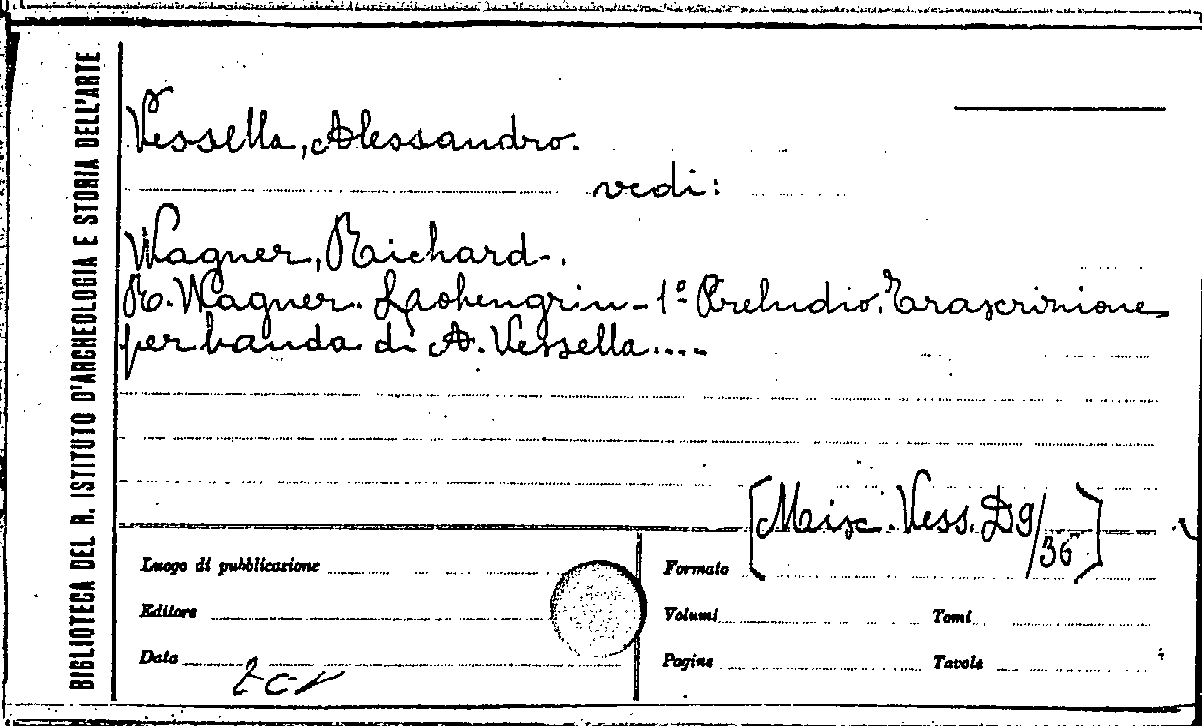 BIBLIOTECA DEL R. ISTITUTO D'ARCHEOLOGIA E STORIA DELL'ARTE
Vessella, Alessandro.
vedi:
Wagner, Richard.
R. Wagner. Lohengrin - 1° Preludio. Trascrizione
per banda di A. Vessella....
[Misc. Vess. D9/36]
Luogo di pubblicazione
Editore
Data
Formato
Volumi
Tomi
Pagine
Tavole